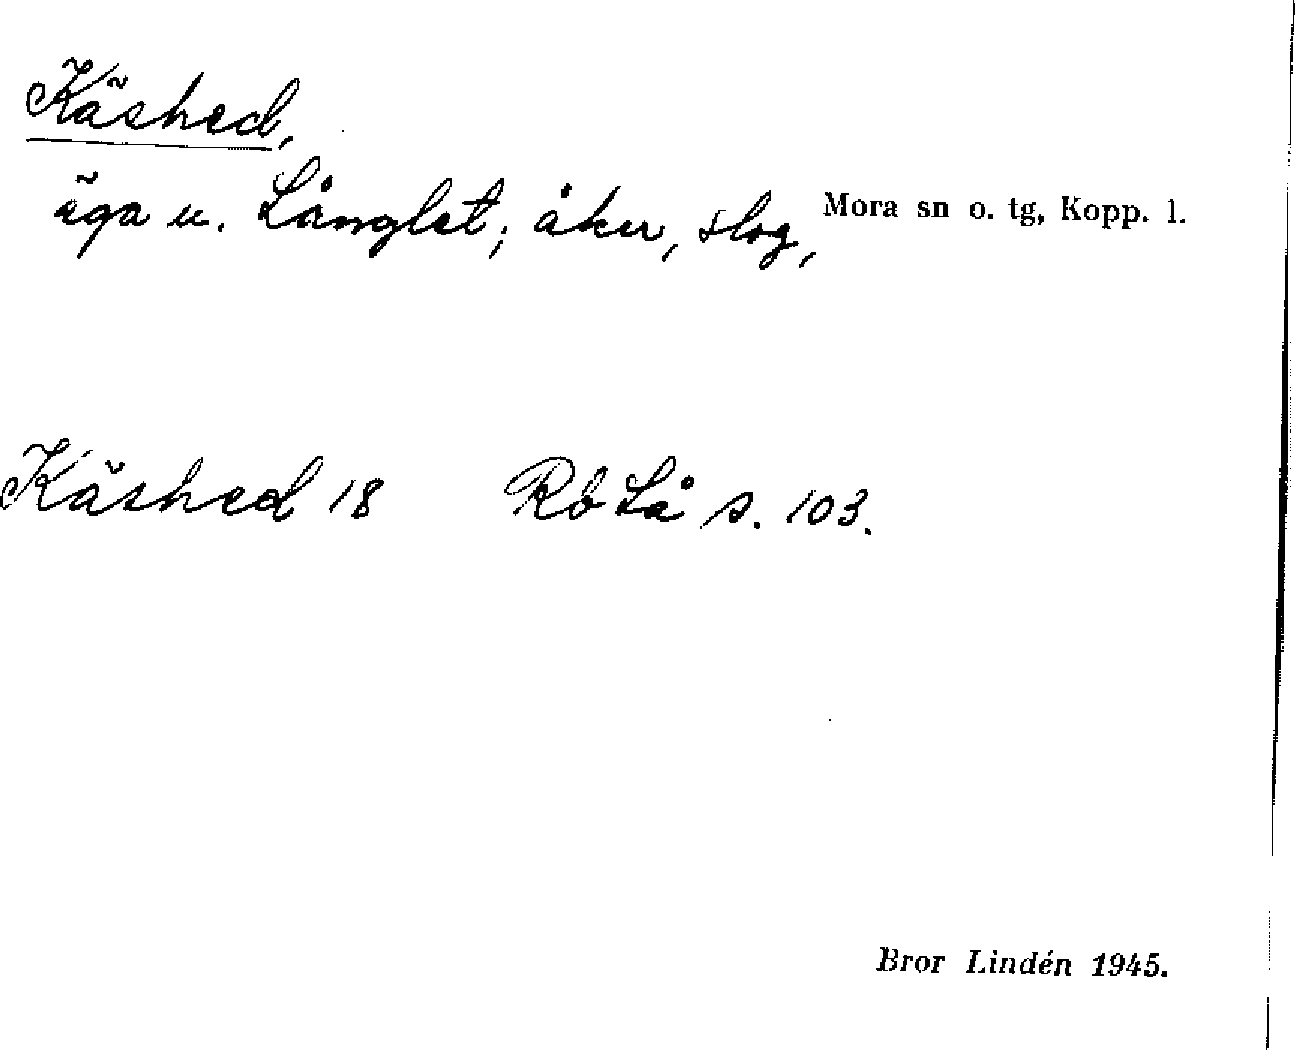 Käshed,
äga u. Långlet; åker, slog, Mora sn o. tg, Kopp. l.
Käshed 18 Rb Lå s. 103.
Bror Lindén 1945.